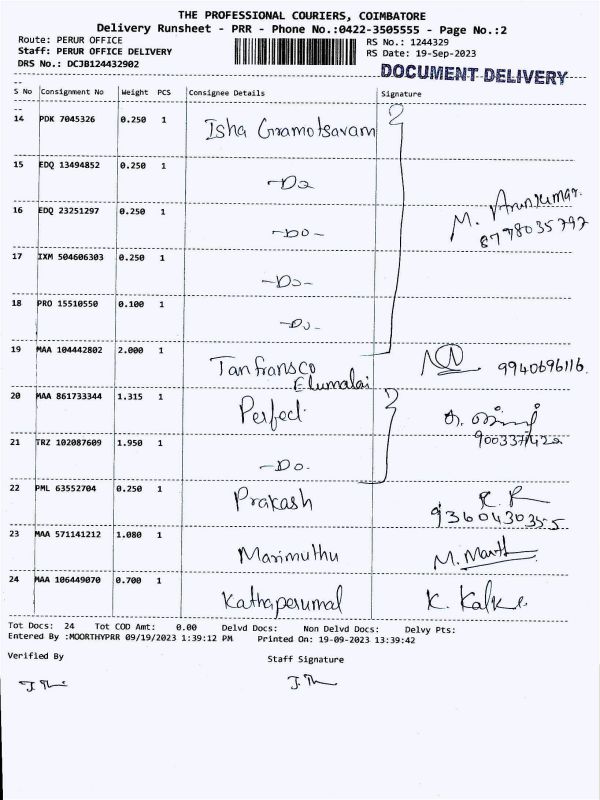 THE PROFESSIONAL COURIERS, COIMBATORE
Delivery Runsheet - PRR - Phone No.:0422-3505555 - Page No.:2
Route: PERUR OFFICE RS No.: 1244329
Staff: PERUR OFFICE DELIVERY RS Date: 19-Sep-2023
DRS No.: DCJB124432902
DOCUMENT DELIVERY
S No Consignment No Weight PCS Consignee Details Signature
14 PDK 7045326 0.250 1
Isha Gramotsavam
15 EDQ 13494852 0.250 1
-Do
16 EDQ 23251297 0.250 1
-Do-
M. Arunkumar
8778035797
17 IXM 504606303 0.250 1
-Do-
18 PRO 15510550 0.100 1
-Do-
19 MAA 104442802 2.000 1
Tanfransco 9940696116.
Elumalai
20 MAA 861733344 1.315 1
Perfect
21 TRZ 102087609 1.950 1
-Do.
22 PML 63552704 0.250 1
Prakash
9360430355
23 MAA 571141212 1.080 1
Marimuthu
24 MAA 106449070 0.700 1
Kathaperumal
Tot Docs: 24 Tot COD Amt: 0.00 Delvd Docs: Non Delvd Docs: Delvy Pts:
Entered By :MOORTHYPRR 09/19/2023 1:39:12 PM Printed On: 19-09-2023 13:39:42
Verified By Staff Signature